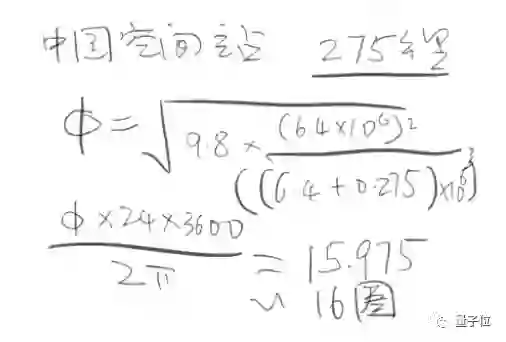 中国空间站 275公里
ϕ = √(9.8 × (6.4×10⁶)² / ((6.4+0.275)×10⁶)³)
ϕ×24×3600 / 2π = 15.975
≈ 16圈
量子位